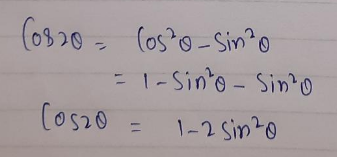 Cos2θ = Cos²θ - Sin²θ
= 1 - Sin²θ - Sin²θ
Cos2θ = 1 - 2 Sin²θ